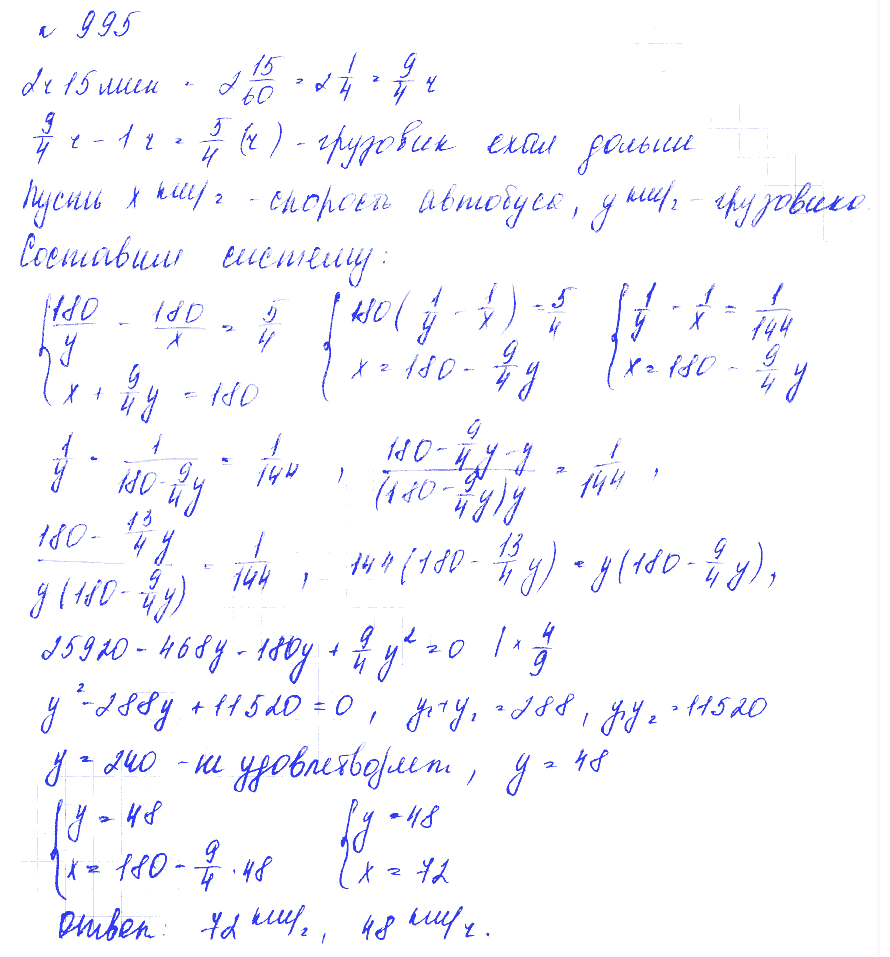 № 995
2ч 15 мин = 2 15/60 = 2 1/4 = 9/4 ч
9/4 ч - 1 ч = 5/4 (ч) - грузовик ехал дольше
Пусть x км/ч - скорость автобуса, y км/ч - грузовика.
Составим систему:
{ 180/y - 180/x = 5/4 { 180(1/y - 1/x) = 5/4 { 1/y - 1/x = 1/144
x + 9/4 y = 180 x = 180 - 9/4 y x = 180 - 9/4 y
1/y - 1/(180 - 9/4 y) = 1/144 , (180 - 9/4 y - y)/((180 - 9/4 y)y) = 1/144 ,
(180 - 13/4 y)/(y(180 - 9/4 y)) = 1/144 , 144(180 - 13/4 y) = y(180 - 9/4 y),
25920 - 468y - 180y + 9/4 y² = 0 | × 4/9
y² - 288y + 11520 = 0 , y₁ + y₂ = 288 , y₁y₂ = 11520
y = 240 - не удовлетворяет, y = 48
{ y = 48 { y = 48
x = 180 - 9/4 · 48 x = 72
Ответ: 72 км/ч, 48 км/ч.